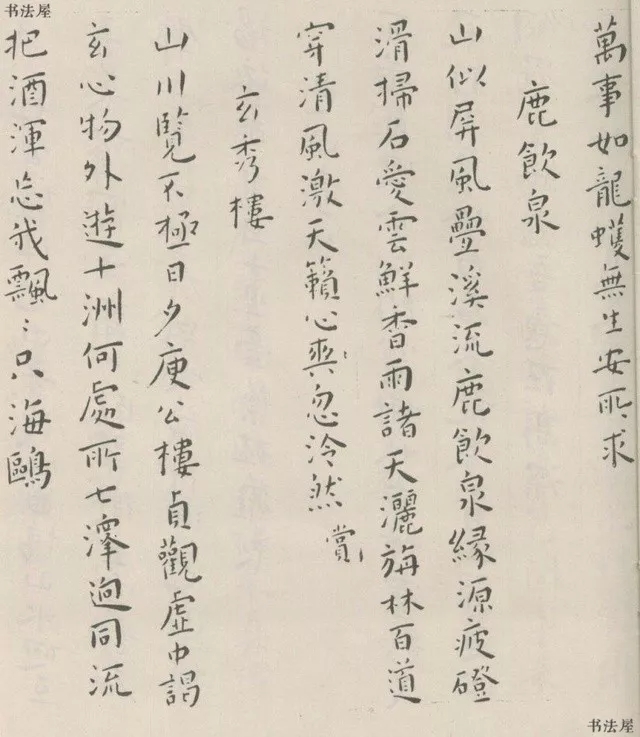 书法屋
萬事如龍蠖無生安所求
鹿飲泉
山似屏風疊溪流鹿飲泉緣源疲磴
滑掃石愛雲鮮香雨諸天灑旃林百道
穿清風激天籟心爽忽泠然
賞
玄秀樓
山川覽不極日夕庾公樓貞觀虛中謁
玄心物外遊十洲何處所七澤迥同流
把酒渾忘我飄〻只海鷗
书法屋